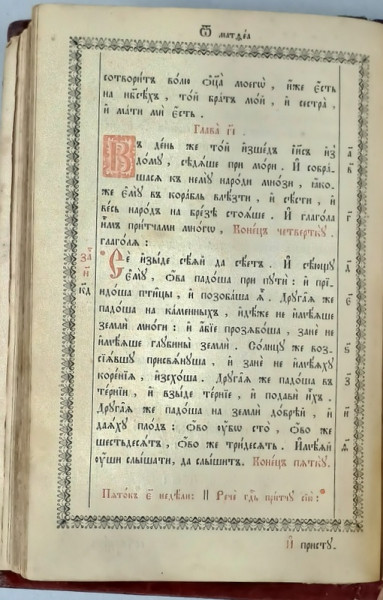 Ѿ матѳеа
сотвори́тъ во́лю ѻ҆ц҃а̀ моегѡ̀, и҆́же є҆́сть
на нб҃сѣ́хъ, то́й бра́тъ мо́й, и҆ сестра̀,
и҆ ма́ти мѝ є҆́сть.
Глава̀ г҃і.
Въ де́нь же то́й и҆зше́дъ і҆и҃съ и҆з̾
до́мꙋ, сѣдѧ́ше при мо́ри. И҆ собра́-
шасѧ к немꙋ̀ наро́ди мно́зи, ꙗ҆́ко-
же є҆мꙋ̀ въ кора́бль влѣ́зти, и҆ сѣ́сти, и҆
ве́сь наро́дъ на бре́зѣ стоѧ́ше. И҆ глаго́ла
и҆̀мъ при́тчами мно́гѡ, Коне́цъ четверткꙋ̀.
глаго́лѧ:
Сѐ и҆зы́де сѣ́ѧй да сѣ́етъ. И҆ сѣ́ющꙋ
є҆мꙋ̀, ѻ҆́ва падо́ша при пꙋтѝ: и҆ прі-
идо́ша пти́цы, и҆ позоба́ша ѧ҆̀. Дрꙋга̑ѧ же
падо́ша на ка́менныхъ, и҆дѣ́же не и҆мѣ́ѧше
землѝ мно́ги: и҆ а҆́бїе прозѧбо́ша, занѐ не
и҆мѣ́ѧше глꙋбины̀ землѝ. Со́лнцꙋ же воз-
сїѧ́вшꙋ присвѧ́нꙋша, и҆ занѐ не и҆мѣ́ѧхꙋ
коре́нїѧ, и҆зсхо́ша. Дрꙋга̑ѧ же падо́ша въ
те́рнїи, и҆ взы́де те́рнїе, и҆ подавѝ и҆́хъ.
Дрꙋга̑ѧ же падо́ша на землѝ до́брѣй, и҆
даѧ́хꙋ пло́дъ: ѻ҆́во ᲂу҆́бѡ сто̀, ѻ҆́во же
шестьдесѧ́тъ, ѻ҆́во же три́десѧть. И҆мѣ́ѧй
ᲂу҆́ши слы́шати, да слы́шитъ. Коне́цъ пѧткꙋ̀.
Пѧто́къ є҃ недѣ́ли: || Речѐ гд҇ь при́тчꙋ сїю̀:
И҆ пристꙋ-
а҃
в҃
г҃
д҃
є҃
ѕ҃
з҃
и҃
ѳ҃
за҃
и҆
кд